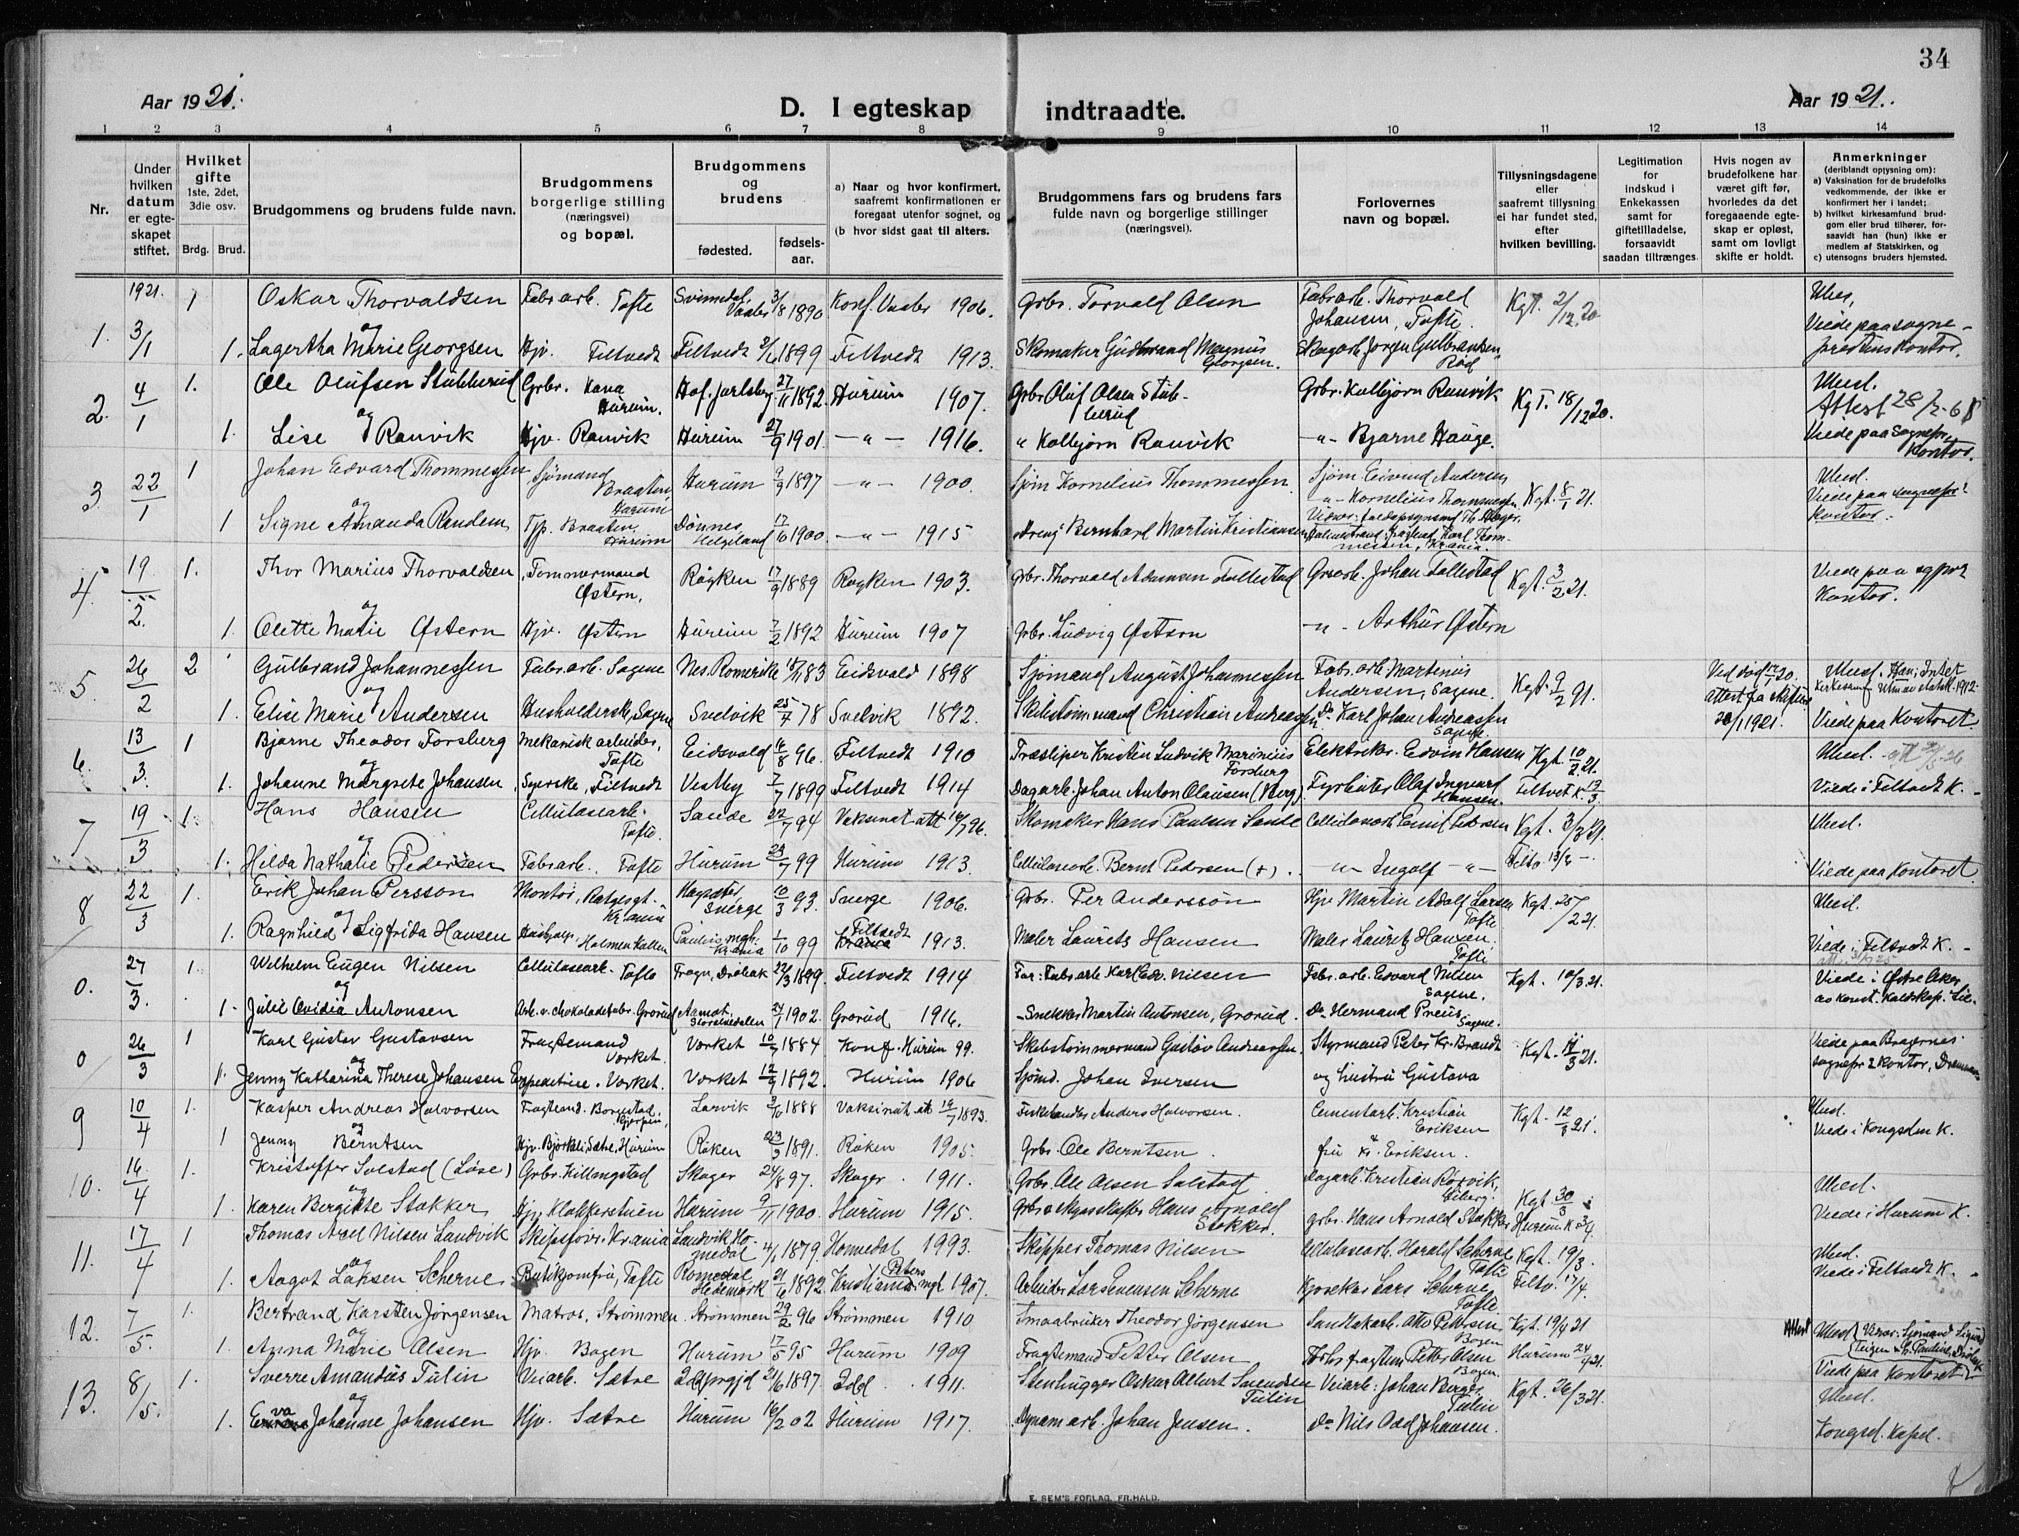 34
Aar 1921.
D. I egteskap indtraadte.
Aar 1921.
1 2 3 4 5 6 7 8 9 10 11 12 13 14
Nr.
Under hvilken datum er egteskapet stiftet.
Hvilket gifte 1ste, 2det, 3die osv.
Brdg. Brud.
Brudgommens og brudens fulde navn.
Brudgommens borgerlige stilling (næringsvei) og bopæl.
Brudgommens og brudens
fødested. fødselsaar.
a) Naar og hvor konfirmert, saafremt konfirmationen er foregaat utenfor sognet, og
(b hvor sidst gaat til alters.
Brudgommens fars og brudens fars fulde navn og borgerlige stillinger (næringsvei).
Forlovernes navn og bopæl.
Tillysningsdagene eller saafremt tillysning ei har fundet sted, efter hvilken bevilling.
Legitimation for indskud i Enkekassen samt for giftetilladelse, forsaavidt saadan tiltrænges.
Hvis nogen av brudefolkene har været gift før, hvorledes da det foregaaende egteskap er opløst, samt om lovligt skifte er holdt.
Anmerkninger (deriblandt oplysning om):
a) Vaksination for de brudefolks vedkommende, der ikke er konfirmert her i landet;
b) hvilket kirkesamfund brudgom eller brud tilhører, forsaavidt han (hun) ikke er medlem af Statskirken, og
c) utensogns bruders hjemsted.
1921. 1 Oskar Thorvaldsen Fabr.arb. Tofte Svinndal, Vaaler 3/8 1890 Konf. Vaaler 1906. Grbr. Torvald Olsen Fabr.arb. Thorvald Johansen, Tofte. Kgt. 2/12.20
1. 3/1 og 1. Lagertha Marie Georgsen Hjv. Filtvedt Filtvedt 1899 Filtvedt 1913. Skomaker Gudbrand Magnus Georgsen. Skogarb. Jørgen Gulbransen Rød Viede paa sogneprestens kontor.
2. 4/1 1. Ole Olufsen Stubberud Grbr. Kana Hurum. Hof, Jarlsberg 27/11 1892. Hurum 1907. Grbr. Oluf Olsen Stubberud Grbr. Kolbjørn Ranvik Kgt. 18/12 20. Attest 28/2-68
og 1. Lise Ranvik Hjv. Ranvik Hurum 27/9 1901. -"- 1916. " Kolbjørn Ranvik -"- Bjarne Hauge. Viede paa Sognepr. kontor.
3. 22/1 1 Johan Edvard Thommessen Sjømand Braaten, Hurum Hurum 9/9 1897 -"- 1900. Sjøm Kornelius Thommessen. Sjøm Eivind Andersen -"- Kornelius Thommessen Kgt. 8/1 21. Viede paa sognepr? kontor.
og 1 Signe Amanda Randem Tjp. Braaten, Hurum Dønnes Helgeland 17/6 1900. -"- 1915 Bernhard Martin Kristiansen
4. 19/2. 1. Thor Marius Thorvaldsen Tømmermand Østern, Røyken 17/9 1889 Røyken 1903. Grbr. Thorvald Adamsen Follestad Johan Follestad Kgt. 3/2 21. Viede paa sgpr? kontor.
og 1. Olette Matie Østern Hjv. Østern Hurum 7/2 1892 Hurum 1907 Grbr. Ludvig Østern -"- Arthur Østern
5 26/2 2 Gulbrand Johannessen Fabr.arb. Sagene Nes Romerike 83 Eidsvald 1898 Sjømand August Johannessen Fabr.arb. Martinius Andersen, Sagene. Kgt. 9/2 91.
og 1. Elise Marie Andersen Husholderske, Sagene Svelvik 25/4 78 Svelvik 1892. Skibstømmand Christian Andreassen Do Karl Johan Andreassen Sagene. Viede paa Kontoret
6. 13/3. 1 Bjarne Theodor Forsberg Mekanisk arbeider, Tofte Eidsvald 16/8 96. Filtvedt 1910 Træsliper Kristin Ludvik Marinius Forsberg Elektriker Edvin Hansen Kgt. 10/2 21.
og 1. Johanne Margrete Johansen Syerske, Filtvedt Vestby 7/7 1899 Filtvedt 1914 Dagarb. Johan Anton Olausen (Berg). Fyrbøter Olaf Ingvard Hansen. Filtvet K. 13/3. Viede i Filtvedt K.
7 19/3 1. Hans Hansen Cellulosearb. Tofte. Sande 22/7 94 Vaksinat. att 16/7 96. Skomaker Hans Paulsen Sande Cellulosearb Emil Pedersen Kgt. 3/3 21.
og 1. Hilda Nathalie Pedersen Fabr.arb. Tofte Hurum 23/7 99 Hurum 1913. Cellulosearb. Bernt Pedersen (+). -"- Ingolf -"- Viede paa Kontoret.
8 22/3 1. Erik Johan Persson Montør, Kr.ania Sverge 10/3 93. Sverge 1906. Grbr. Per Anderssøn Martin Adolf Larsen Tofte Kgt. 25/2 21.
og 1. Ragnhild Sigfrida Hansen Holmenkollen Kr.ania 1/10 99 Filtvedt 1913. Maler Laurits Hansen Maler Lauritz Hansen. Tofte Viede i Filtvedt K.
0. 27/3. 1. Wilhelm Eugen Nilsen Cellulosearb. Tofte Frogn, Drøbak 22/3 1899. Filtvedt 1914 Far: Fabr.arb. Karl Edv. Nilsen Fabr. arb. Edvard Nilsen Sagene. Kgt. 10/3 21. Viede i Østre Aker
og 1. Julie Ovidia Antonsen Arb. v. chokoladefabr. Grorud Aamot, Storelvedalen 24/7 1902. Grorud 1916. Snekker Martin Antonsen, Grorud. Do Hermand Preus Sagene.
0 26/3 1 Karl Gustav Gustavsen Fragtemand Verket. Verket 10/7 1884 Konf. Hurum 99. Skibstømmermand Gustav Andreassen. Styrmand Peter Kr. Brandt Kgt. 11/3 21. Viede paa Bragernes
og 1. Jenny Katharina Therese Johansen Expeditrice, Verket. Verket 1892. Hurum 1906 Sjømd. Johan Iversen og hustru Gustava sognepr's kontor, Drammen
9 10/4 1. Kasper Andreas Halvorsen Borgestad, Gjerpen. Larvik 1888 Vaksinat. att 1893. Anders Halvorsen. Cementarb. Kristian Eriksen Kgt. 12/3 21.
og 1 Jenny Berntsen Hjv. Bjørkli, Sætre, Hurum Røken 23/3 1891. Røken 1905. Grbr. Ole Berntsen. fru Kr. Eriksen. Viede i Kongsdln K.
10. 16/4 1. Kristoffer Solstad (Løse) Grbr. Killingstad Skoger 24/8 97. Skoger 1911. Grbr. Ole Olsen Solstad Dagarb. Kristian Rørvik, Kgt 30/3
og 1. Karen Bergitte Stokker Hjv. Klokkerstuen Hurum 9/11 1900. Hurum 1915. Hans Arnold Stokker. Grbr. Hans Arnold Stokker Hurum K 3/4. Viede i Hurum K.
11. 17/4 1 Thomas Axel Nilsen Landvik Skipsfører. Kr.ania Landvik Homedal 4/1 1879 Homedal 1993. Skipper Thomas Nilsen Cellulosearb. Harald Scherne Tofte Kgt. 19/3.
og 1. Aagot Larsen Scherne Butikjomfru, Tofte Romedal Hedemark 21/6 1892 Kristiania Peters mgt 1907. Arbeider Lars Evensen Scherne Lars Scherne Tofte Filtv. 17/4. Viede i Filtvedt K.
12. 7/5. 1. Bertrand Karsten Jørgensen Matros, Strømmen Strømmen 29/2 96 Strømmen 1910 Smaabruker Theodor Jørgensen Sandtakarb. Otto Pettersen Bogen Kgt. 19/4 21
og 1. Anna Marie Olsen Hjv. Bogen Hurum 17/5 95 Hurum 1909 Fragtemand Petter Olsen Petter Olsen Bogen. Hurum 24/4 21. Viede paa kontoret
13. 8/5. 1. Sverre Amandus Tulin Veiarb. Sætre 21/6 1897 Idd. 1911. Stenhugger Oskar Albert Svendsen Tulin Veiarb: Johan Berger Tulin Kgt. 26/3 21.
og 1. Eva Johanne Johansen Hjv. Sætre Hurum 16/2 02 Hurum 1917. Dynam.arb. Johan Jensen. Do Nils Odd Johansen. Kongsd. Kapel.
E. SEM'S FORLAG, FR.HALD.